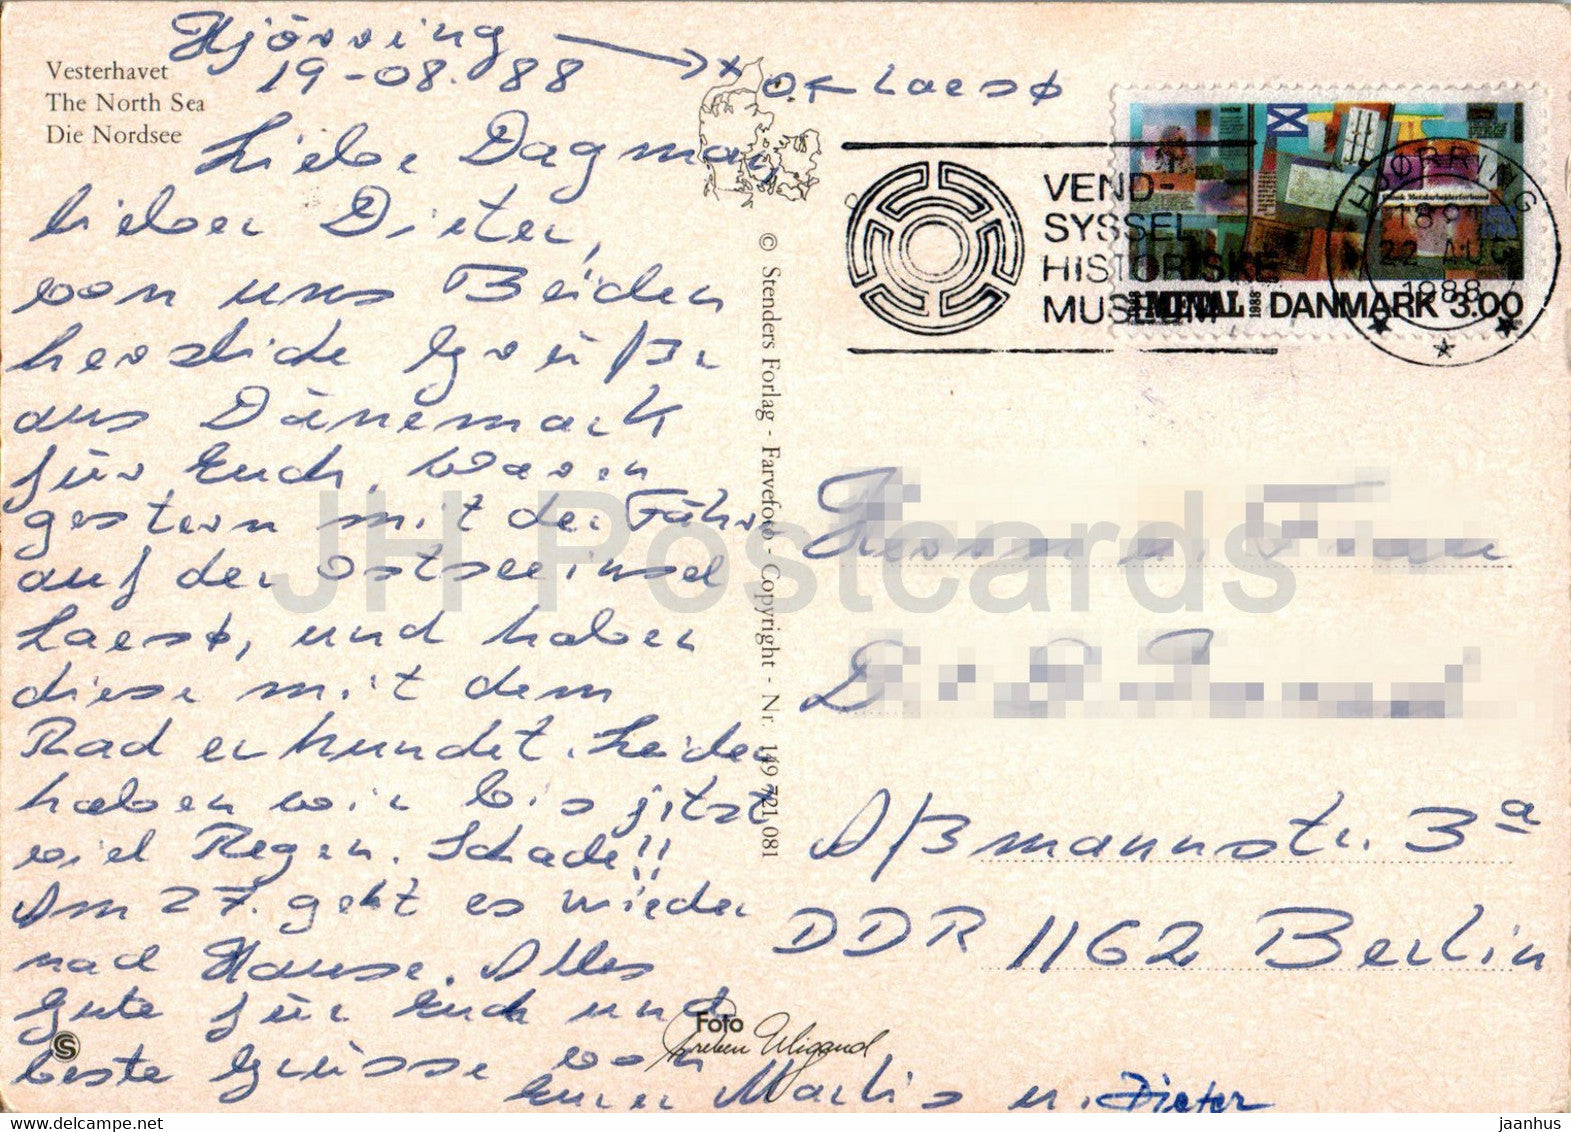 Hjörring
19-08.88
x o.K Laesø
Vesterhavet
The North Sea
Die Nordsee
Liebe Dagmar
lieber Dieter,
von uns Beiden
herzliche Grüße
aus Dänemark
für Euch. Waren
gestern mit der Fähre
auf der Ostseeinsel
Laesø, und haben
diese mit dem
Rad erkundet. Leider
haben wir bis jetzt
viel Regen. Schade!!
Am 27. geht es wieder
nach Hause. Alles
Gute für Euch und
beste Grüsse von
Eurer Marlis u. Dieter
© Stenders Forlag - Farvefoto - Copyright - Nr. 149 721 081
Foto
Preben Wigand
S
VEND-
SYSSEL
HISTORISKE
MUSEUM
HJØRRING
22 AUG
1988
1988
DANMARK 3.00
Herrn u. Frau
Aßmannstr. 3a
DDR 1162 Berlin
JH Postcards
jaanhus
www.delcampe.net